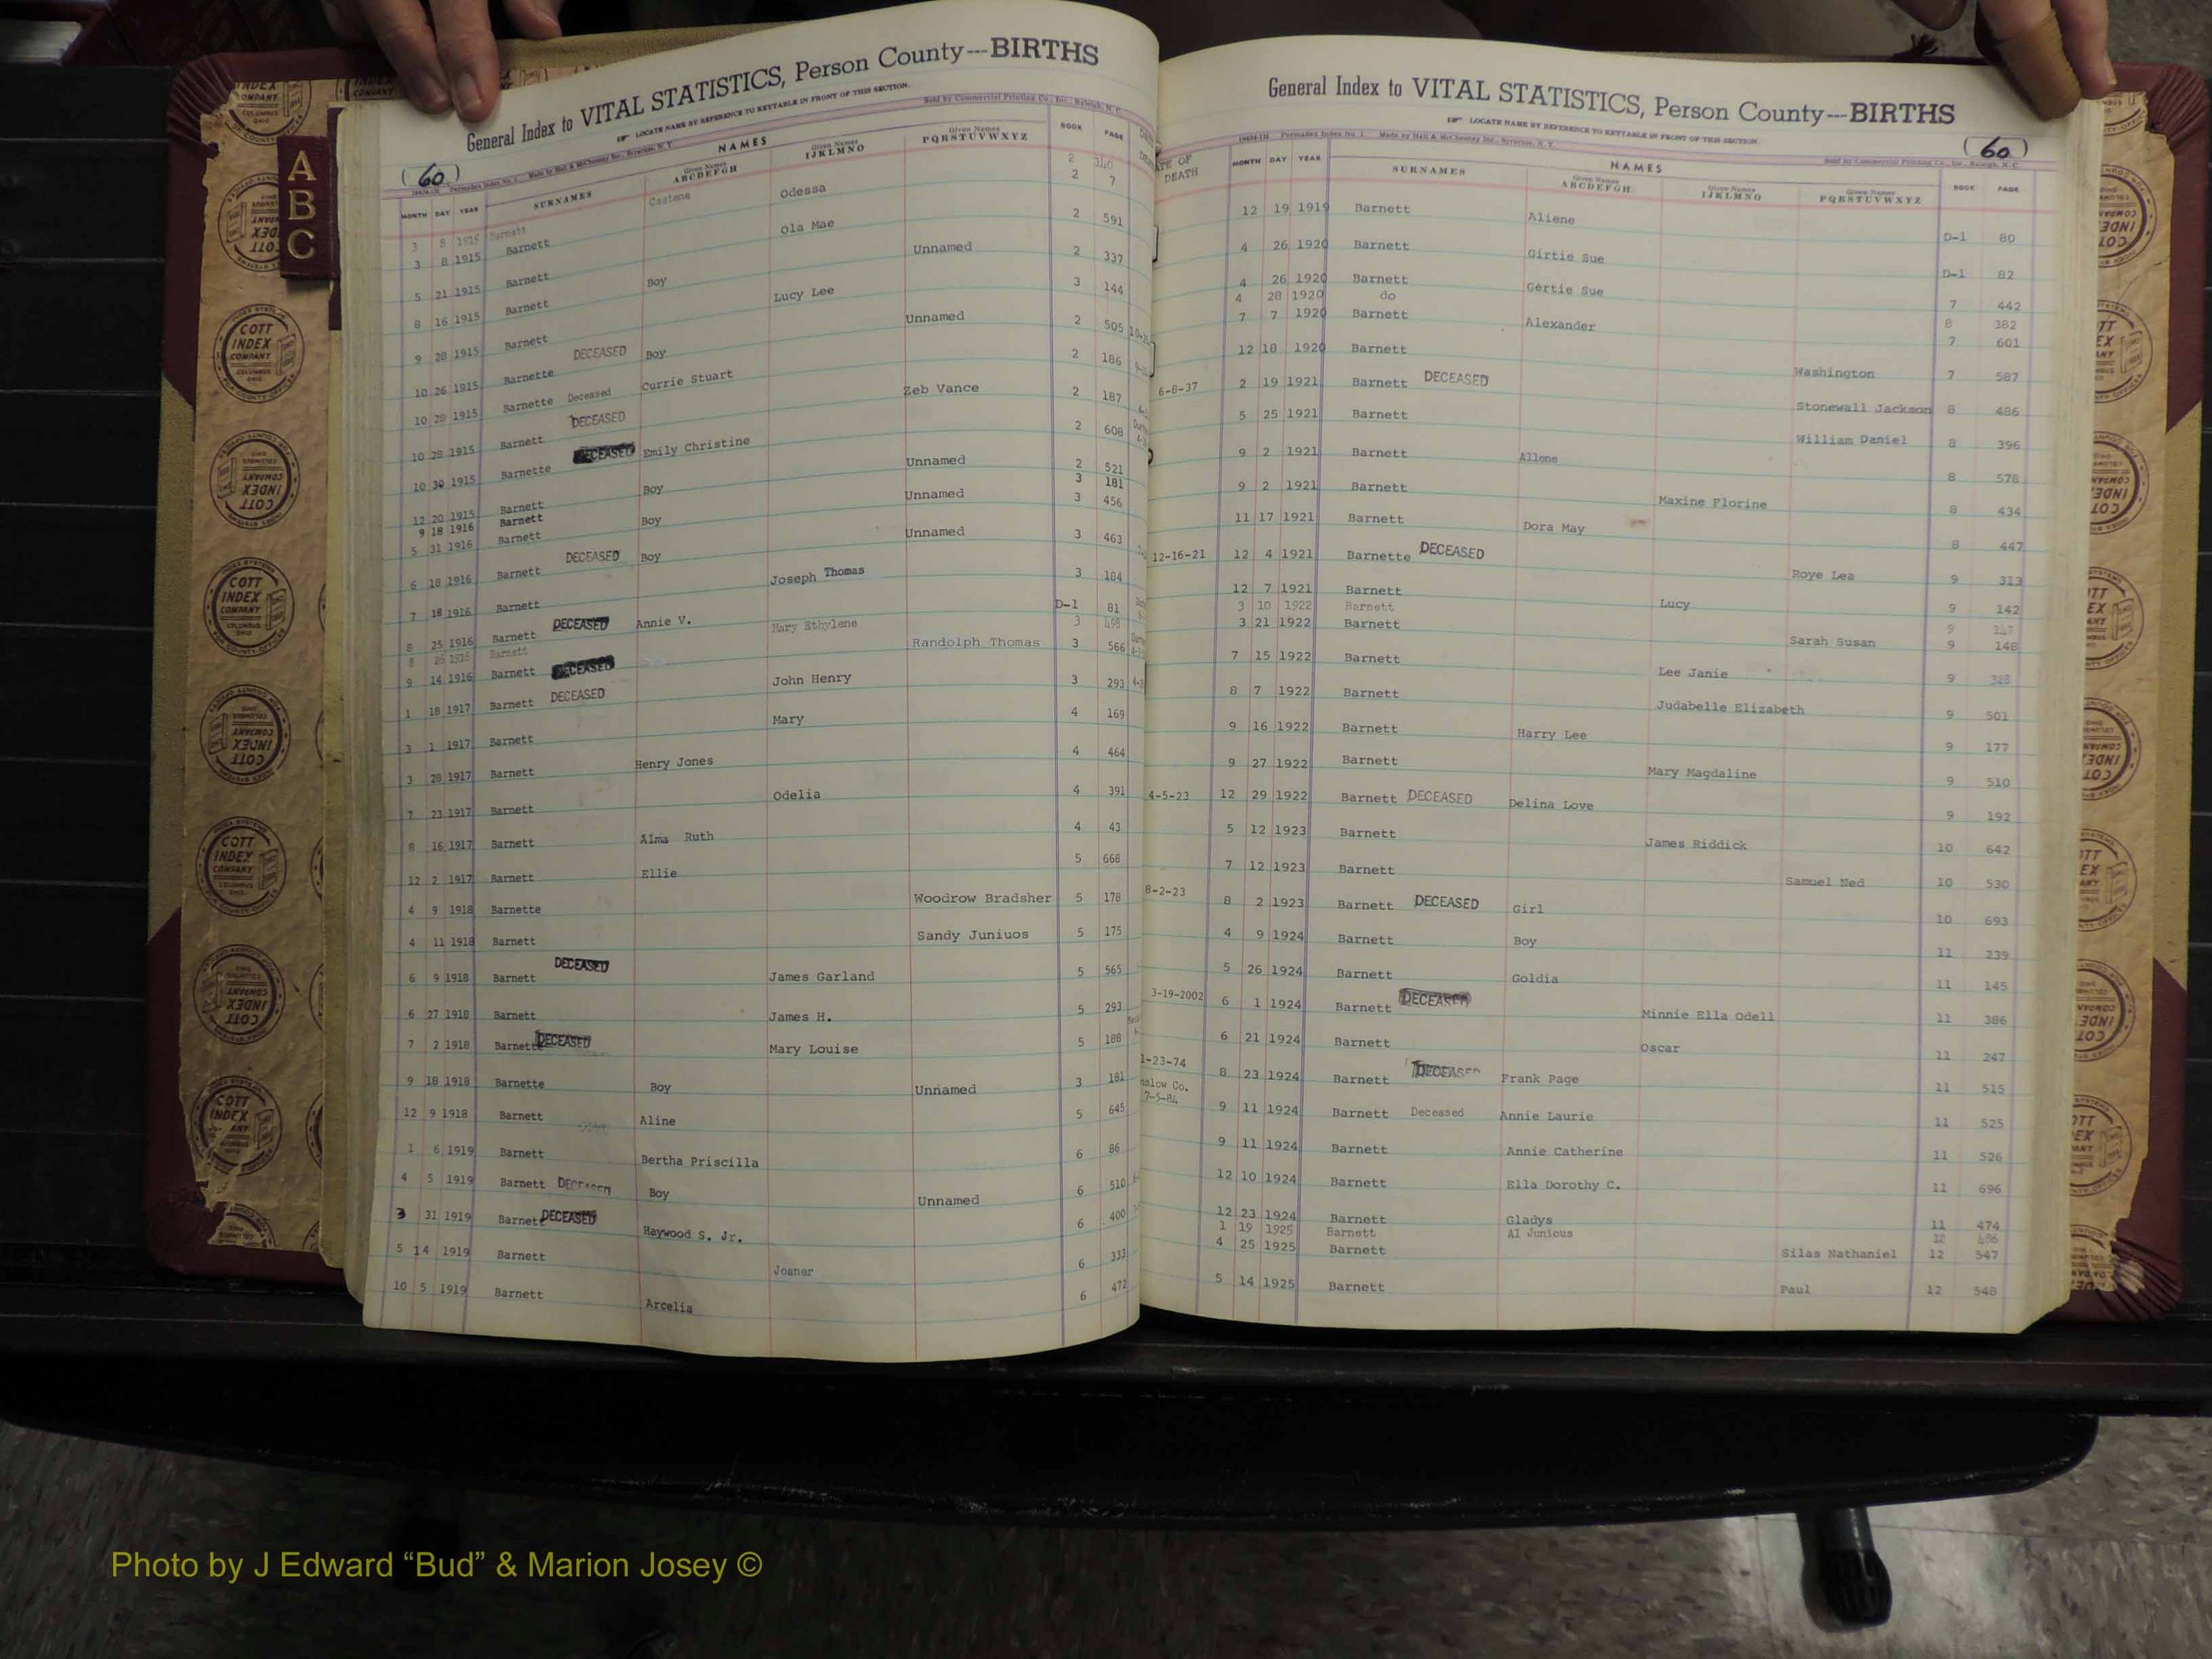 General Index to VITAL STATISTICS, Person County---BIRTHS
LOCATE NAME BY REFERENCE TO KEYTABLE IN FRONT OF THIS SECTION.
(60)
Sold by Commercial Printing Co., Inc., Raleigh, N. C.
MONTH DAY YEAR SURNAMES NAMES Given Names ABCDEFGH Given Names IJKLMNO Given Names PQRSTUVWXYZ BOOK PAGE
3 8 1916 Barnett Odessa 2 140
3 8 1915 Barnett Ola Mae 2 7
5 21 1915 Barnett Boy Unnamed 2 591
8 16 1915 Barnett Lucy Lee 2 337
9 28 1915 Barnett DECEASED Boy Unnamed 3 144
10 26 1915 Barnette Deceased Currie Stuart 2 505
10 28 1915 Barnette DECEASED Zeb Vance 2 186
10 28 1915 Barnett DECEASED Emily Christine 2 187
10 30 1915 Barnette Boy Unnamed 2 608
12 20 1915 Barnett Boy Unnamed 2 521
9 18 1916 Barnett 3 181
5 31 1916 Barnett DECEASED Boy Unnamed 3 456
6 18 1916 Barnett Joseph Thomas 3 463
7 18 1916 Barnett DECEASED Annie V. 3 184
8 25 1916 Barnett Mary Ethylene D-1 81
8 26 1916 Barnett 3 498
9 14 1916 Barnett DECEASED Randolph Thomas 3 566
1 18 1917 Barnett DECEASED John Henry 3 293
3 1 1917 Barnett Mary 4 169
3 28 1917 Barnett Henry Jones 4 464
7 23 1917 Barnett Odelia 4 391
8 16 1917 Barnett Alma Ruth 4 43
12 2 1917 Barnett Ellie 5 668
4 9 1918 Barnette Woodrow Bradsher 5 178
4 11 1918 Barnett Sandy Juniuos 5 175
6 9 1918 Barnett DECEASED James Garland 5 565
6 27 1918 Barnett James H. 5 293
7 2 1918 Barnette DECEASED Mary Louise 5 188
9 18 1918 Barnette Boy Unnamed 3 181
12 9 1918 Barnett Aline 5 645
1 6 1919 Barnett Bertha Priscilla 6 86
4 5 1919 Barnett DECEASED Boy Unnamed 6 510
3 31 1919 Barnett DECEASED Haywood S. Jr. 6 400
5 14 1919 Barnett Joaner 6 333
10 5 1919 Barnett Arcelia 6 472
General Index to VITAL STATISTICS, Person County---BIRTHS
LOCATE NAME BY REFERENCE TO KEYTABLE IN FRONT OF THIS SECTION.
(60)
Made by Hall & McChesney Inc., Syracuse, N. Y. Sold by Commercial Printing Co., Inc., Raleigh, N. C.
DEATH MONTH DAY YEAR SURNAMES NAMES Given Names ABCDEFGH Given Names IJKLMNO Given Names PQRSTUVWXYZ BOOK PAGE
12 19 1919 Barnett Aliene D-1 80
4 26 1920 Barnett Girtie Sue D-1 82
4 26 1920 Barnett Gertie Sue 7 442
4 28 1920 do 8 382
7 7 1920 Barnett Alexander 7 601
12 18 1920 Barnett Washington 7 587
6-8-37 2 19 1921 Barnett DECEASED Stonewall Jackson 8 486
5 25 1921 Barnett William Daniel 8 396
9 2 1921 Barnett Allene 8 578
9 2 1921 Barnett Maxine Florine 8 434
11 17 1921 Barnett Dora May 8 447
12-16-21 12 4 1921 Barnette DECEASED Roye Lea 9 313
12 7 1921 Barnett Lucy 9 142
3 10 1922 Barnett 9 147
3 21 1922 Barnett Sarah Susan 9 148
7 15 1922 Barnett Lee Janie 9 328
8 7 1922 Barnett Judabelle Elizabeth 9 501
9 16 1922 Barnett Harry Lee 9 177
9 27 1922 Barnett Mary Magdaline 9 510
4-5-23 12 29 1922 Barnett DECEASED Delina Love 9 192
5 12 1923 Barnett James Riddick 10 642
7 12 1923 Barnett Samuel Ned 10 530
8-2-23 8 2 1923 Barnett DECEASED Girl 10 693
4 9 1924 Barnett Boy 11 239
5 26 1924 Barnett Goldia 11 145
3-19-2002 6 1 1924 Barnett DECEASED Minnie Ella Odell 11 386
6 21 1924 Barnett Oscar 11 247
1-23-74 8 23 1924 Barnett DECEASED Frank Page 11 515
7-5-84 9 11 1924 Barnett Deceased Annie Laurie 11 525
9 11 1924 Barnett Annie Catherine 11 526
12 10 1924 Barnett Ella Dorothy C. 11 696
12 23 1924 Barnett Gladys 11 474
1 19 1925 Barnett Al Junious 12 486
4 25 1925 Barnett Silas Nathaniel 12 547
5 14 1925 Barnett Paul 12 548
A
B
C
COTT INDEX COMPANY COLUMBUS OHIO
Photo by J Edward “Bud” & Marion Josey ©